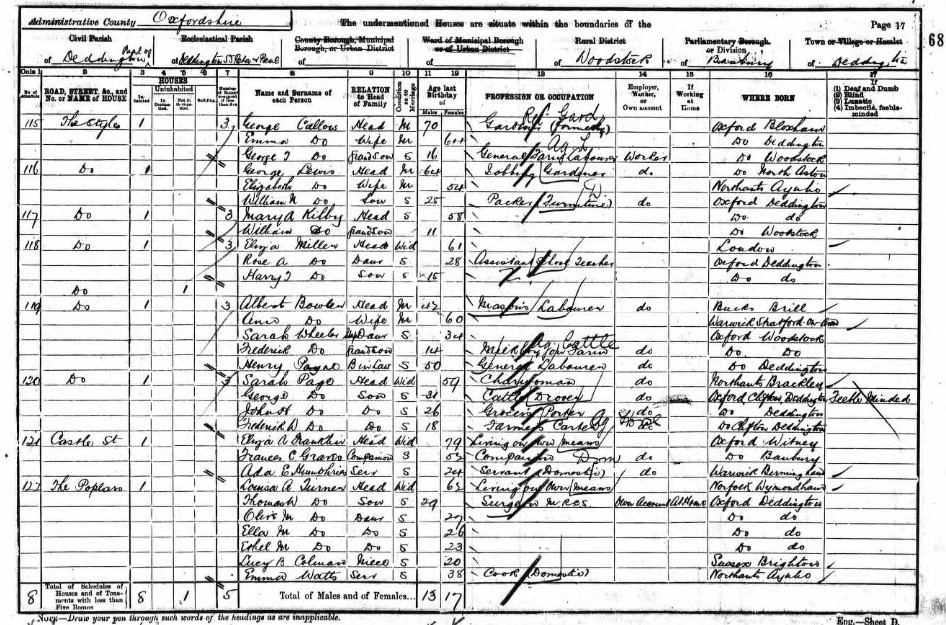 Administrative County Oxfordshire The undermentioned Houses are situate within the boundaries of the Page 17
68
Civil Parish Ecclesiastical Parish County Borough, Municipal Borough, or Urban District Ward of Municipal Borough or of Urban District Rural District Parliamentary Borough, or Division Town or Village or Hamlet
Part of
of Deddington of Deddington SS Peter & Paul of of of Woodstock of Banbury of Deddington
No. of Schedule ROAD, STREET, &c., and No. or NAME of HOUSE HOUSES Inhabited Uninhabited In Occupation Not in Occupation Building Name and Surname of each Person RELATION to Head of Family Condition as to Marriage Age last Birthday of Males Females PROFESSION OR OCCUPATION Employer, Worker, or Own account If Working at Home WHERE BORN (1) Deaf and Dumb (2) Blind (3) Lunatic (4) Imbecile, feeble-minded
115 The Styles 1 3 George Callow Head M 70 Gardener (Formerly) Ret. Gard Oxford Bloxham
Emma Do Wife M 64 Do Deddington
George T Do Grandson S 16 General Farm Labourer Ag L Worker Do Woodstock
116 Do 1 George Lewis Head M 64 Jobbing Gardener do Do North Aston
Elizabeth Do Wife M 54 Northants Aynho
William N Do Son S 25 Packer (Furniture) D do Oxford Deddington
117 Do 1 3 Mary A Kilby Head S 58 Do do
William Do Grandson 11 Do Woodstock
118 Do 1 3 Eliza Miller Head Wid 61 London
Rose A Do Daur S 28 Assistant School Teacher Oxford Deddington
Harry T Do Son S 15 Do do
Do 1
119 Do 1 3 Albert Bowler Head M 42 Masons Labourer do Bucks Brill
Ann Do Wife M 60 Warwick Stratford on Avon
Sarah Wheeler StepDaur S 34 Oxford Woodstock
Frederick Do Grandson 14 Milk Boy for Farm Ag. Cattle do Do Do
Henry S 50 General Labourer do Do Deddington
120 Do 1 3 Sarah Page Head Wid 59 Charwoman do Northants Brackley
George Do Son S 31 Cattle Drover do Oxford Clifton, Deddington Feeble Minded
John H Do Do S 26 Grocers Porter do Do Deddington
Frederick D Do Do S 18 Farmers Carter do Do Clifton Deddington
121 Castle St 1 Eliza A Franklin Head Wid 79 Living on own means Oxford Witney
Frances C Graves Companion S 53 Companion Dom do Do Banbury
Ada E Humphries Serv S 24 Servant (Domestic) do Warwick Bermingham
122 The Poplars 1 Louisa A Turner Head Wid 65 Living on Own means Norfolk Wymondham
Thomas Do Son S 29 Surgeon M.R.C.S. Own Account At Home Oxford Deddington
Olive M Do Daur S 27 Do do
Ella M Do Do S 26 Do do
Ethel M Do Do S 23 Do do
Lucy B Colman Niece S 20 Sussex Brighton
Emma Watts Serv S 38 Cook (Domestic) Northants Aynho
8 Total of Schedules of Houses and of Tenements with less than Five Rooms 8 1 5 Total of Males and of Females... 13 17
NOTE—Draw your pen through such words of the headings as are inapplicable. Eng.—Sheet D.